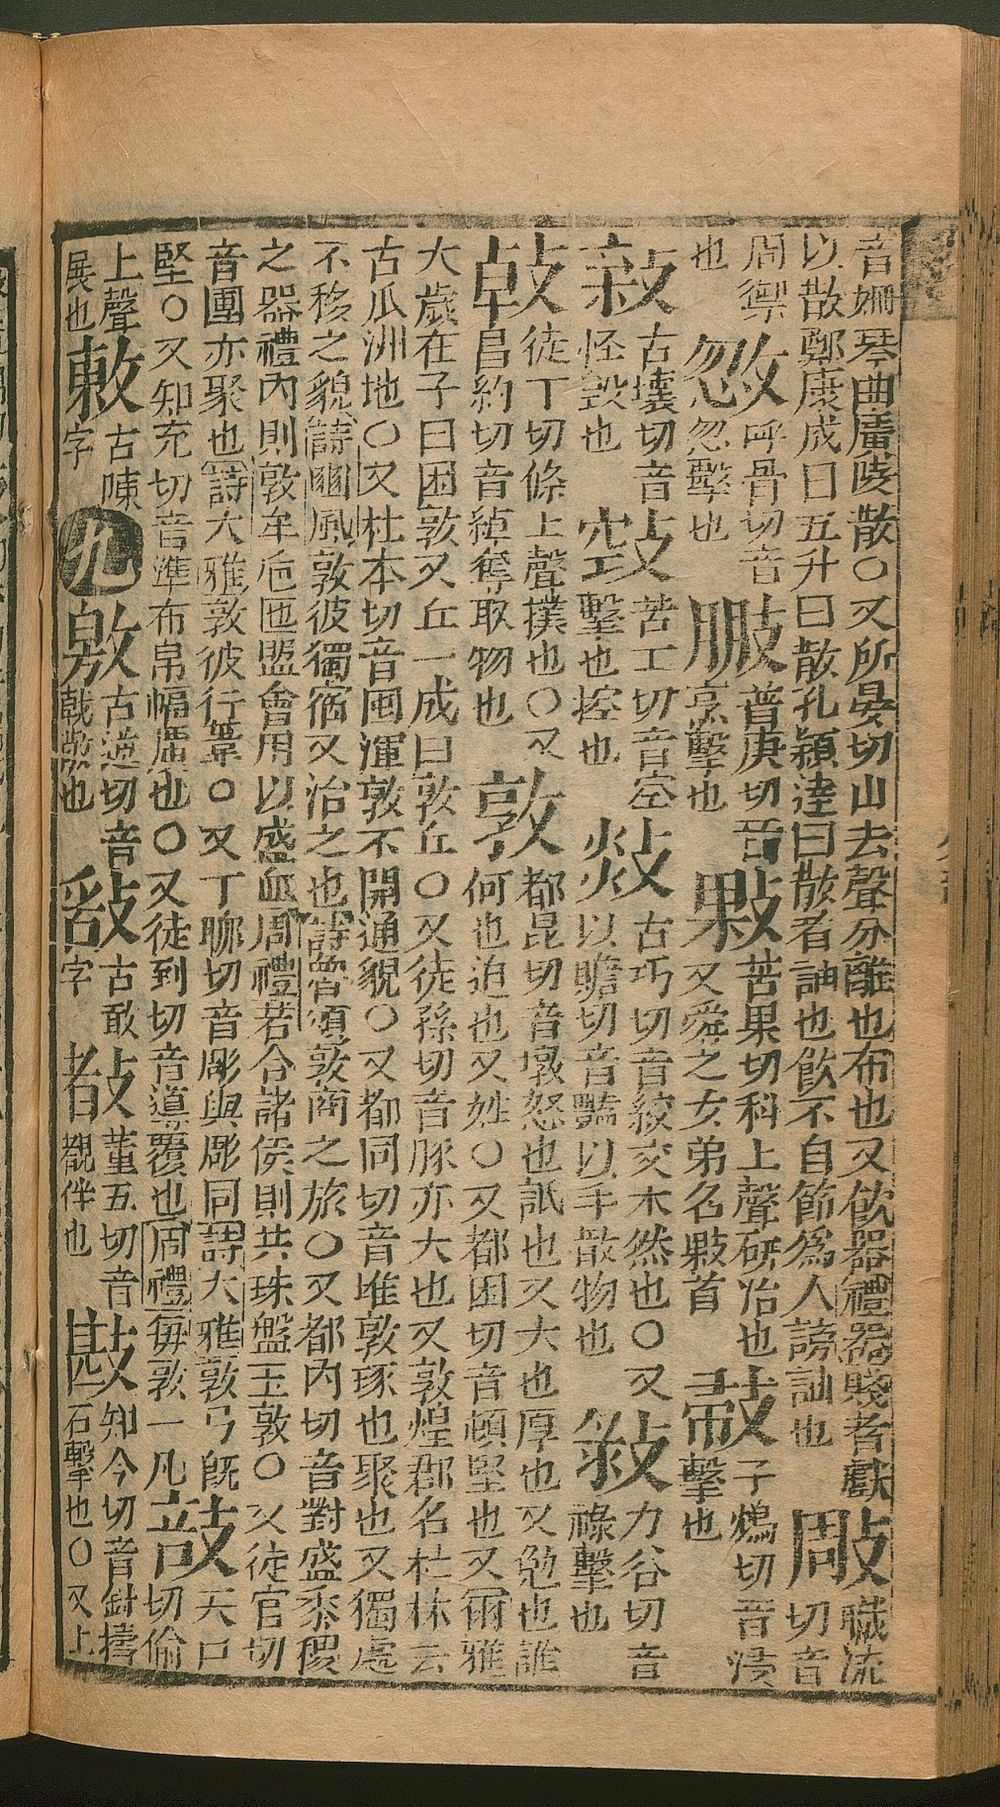 音姍琴曲廣陵散○又所晏切山去聲分離也布也又飲器禮器賤者獻
以散鄭康成曰五升曰散孔穎達曰散者訕也飲不自節爲人謗訕也
㪉職流切音周禦也
𢼒呼骨切音忽忽擊也
普庚切音烹擊也
敤苦果切科上聲研治也又舜之女弟名敤首
子鴆切音浸擊也
古壞切音怪毀也
苦工切音空擊也控也
古巧切音絞交木然也○又以贍切音豔以手散物也
力谷切音祿擊也
徒丁切條上聲撲也○又昌約切音綽奪取物也
敦都昆切音墩怒也詆也又大也厚也又勉也誰何也迫也又姓○又都困切音頓堅也又爾雅
大歲在子曰困敦又丘一成曰敦丘○又徒孫切音豚亦大也又敦煌郡名杜林云
古瓜洲地○又杜本切音囤渾敦不開通貌○又都同切音堆敦琢也聚也又獨處
不移之貌詩豳風敦彼獨宿又治之也詩魯頌敦商之旅○又都內切音對盛黍稷
之器禮內則敦牟巵匜盟會用以盛血周禮若合諸侯則共珠盤玉敦○又徒官切
音團亦聚也詩大雅敦彼行葦○又丁聊切音彫與彫同詩大雅敦弓旣
堅○又知允切音準布帛幅廣也○又徒到切音導覆也周禮每敦一几
天口切偷上聲展也
敶古陳字
九
敫古逆切音戟敫也
古敢字
董五切音覩伴也
㪛知今切音針擣石擊也○又上